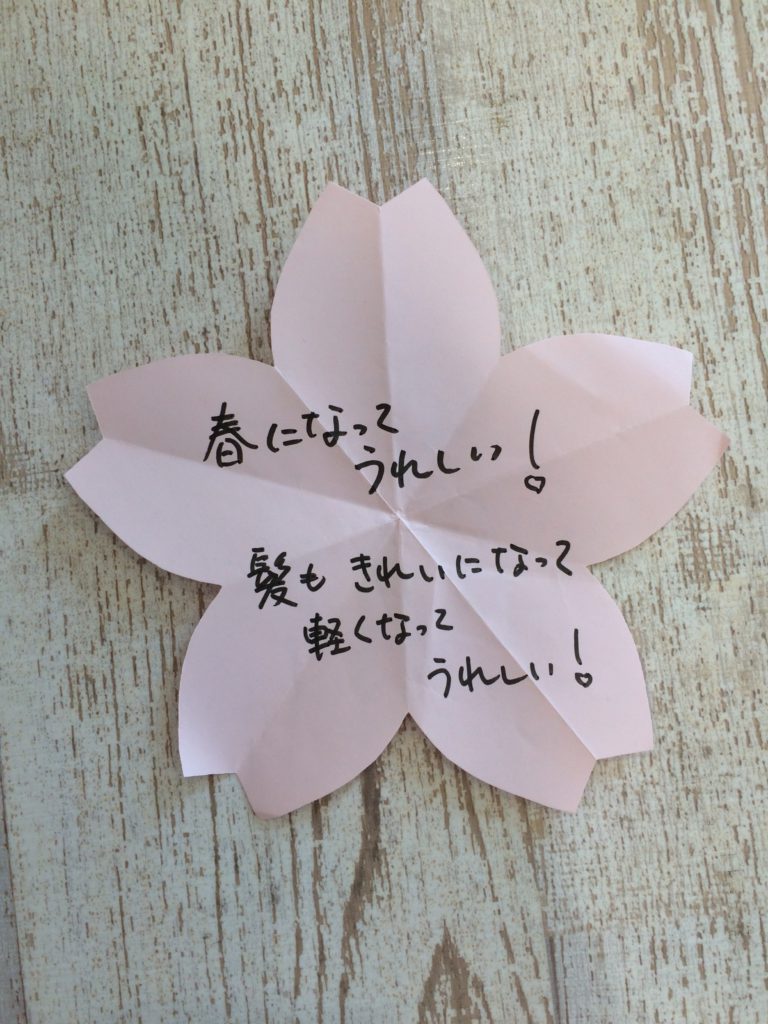 春になって
うれしい!
髪も きれいになって
軽くなって
うれしい!